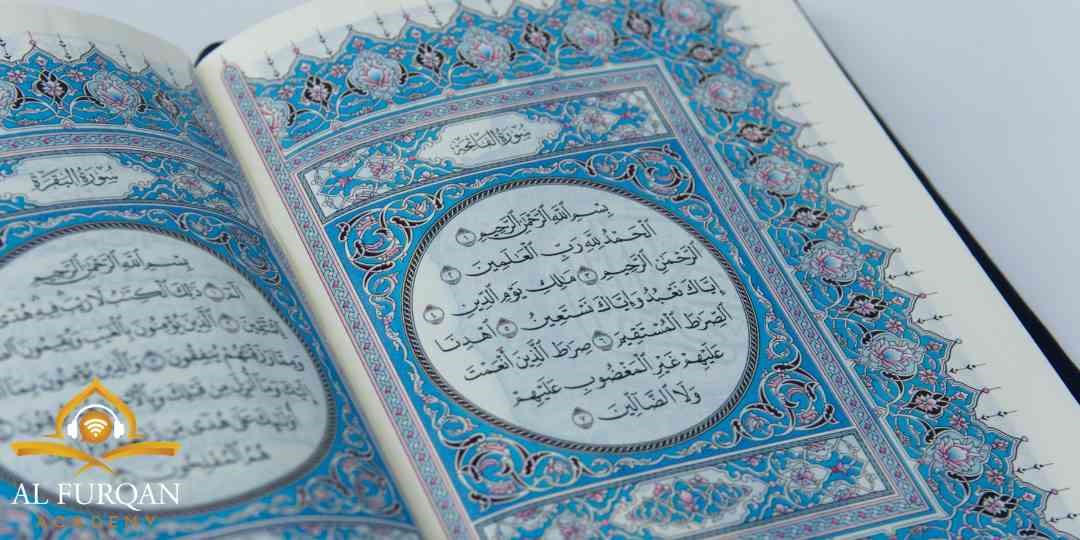 سُورَةُ الفَاتِحَةِ
بِسْمِ ٱللَّهِ ٱلرَّحْمَٰنِ ٱلرَّحِيمِ ١
ٱلْحَمْدُ لِلَّهِ رَبِّ ٱلْعَٰلَمِينَ ٢
ٱلرَّحْمَٰنِ ٱلرَّحِيمِ ٣ مَٰلِكِ يَوْمِ ٱلدِّينِ ٤
إِيَّاكَ نَعْبُدُ وَإِيَّاكَ نَسْتَعِينُ ٥ ٱهْدِنَا
ٱلصِّرَٰطَ ٱلْمُسْتَقِيمَ ٦ صِرَٰطَ ٱلَّذِينَ أَنْعَمْتَ
عَلَيْهِمْ غَيْرِ ٱلْمَغْضُوبِ عَلَيْهِمْ
وَلَا ٱلضَّآلِّينَ ٧
سُورَةُ البَقَرَةِ
بِسْمِ ٱللَّهِ ٱلرَّحْمَٰنِ ٱلرَّحِيمِ
الٓمٓ ١ ذَٰلِكَ ٱلْكِتَٰبُ لَا رَيْبَ فِيهِ هُدًى
لِّلْمُتَّقِينَ ٢ ٱلَّذِينَ يُؤْمِنُونَ بِٱلْغَيْبِ وَيُقِيمُونَ
وَمِمَّا رَزَقْنَٰهُمْ يُنفِقُونَ ٣ وَٱلَّذِينَ يُؤْمِنُونَ بِمَآ
AL FURQAN
ACADEMY